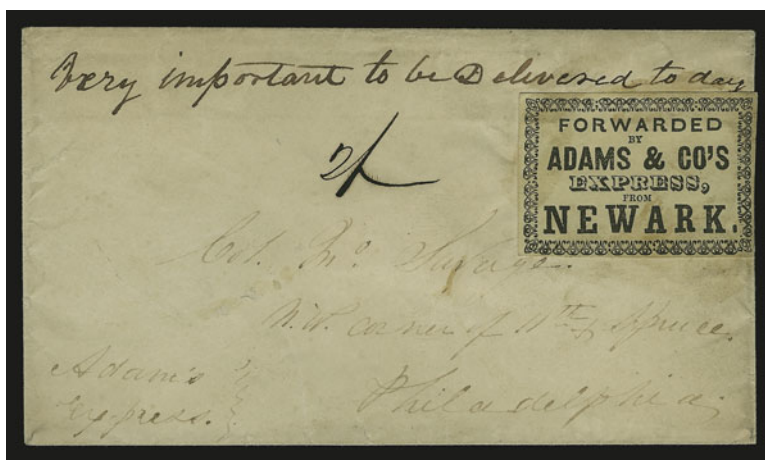 Very important to be Delivered to day
2/
FORWARDED
BY
ADAMS & CO'S
EXPRESS,
FROM
NEWARK.
Col. Jno. Savage.
N.W. corner of 11th & Spruce.
Philadelphia,
Adam's
Express.